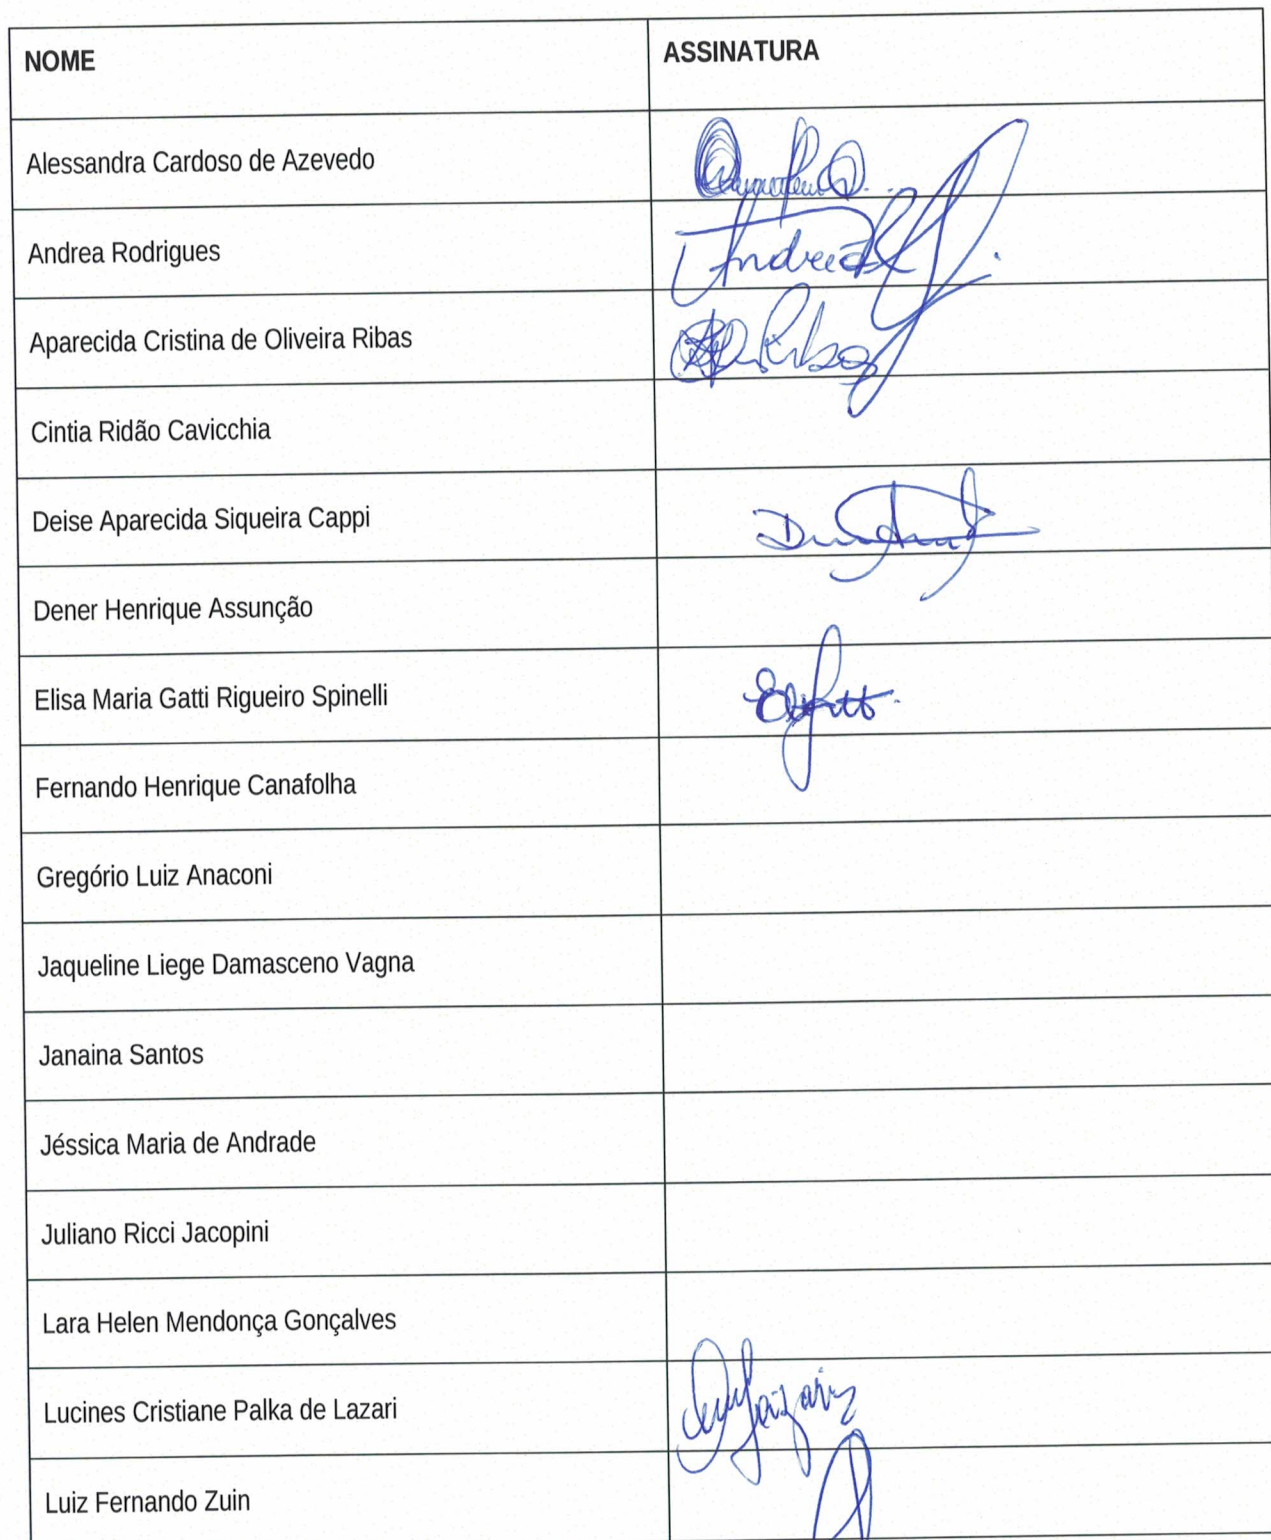 NOME ASSINATURA
Alessandra Cardoso de Azevedo
Andrea Rodrigues
Aparecida Cristina de Oliveira Ribas
Cintia Ridão Cavicchia
Deise Aparecida Siqueira Cappi
Dener Henrique Assunção
Elisa Maria Gatti Rigueiro Spinelli
Fernando Henrique Canafolha
Gregório Luiz Anaconi
Jaqueline Liege Damasceno Vagna
Janaina Santos
Jéssica Maria de Andrade
Juliano Ricci Jacopini
Lara Helen Mendonça Gonçalves
Lucines Cristiane Palka de Lazari
Luiz Fernando Zuin